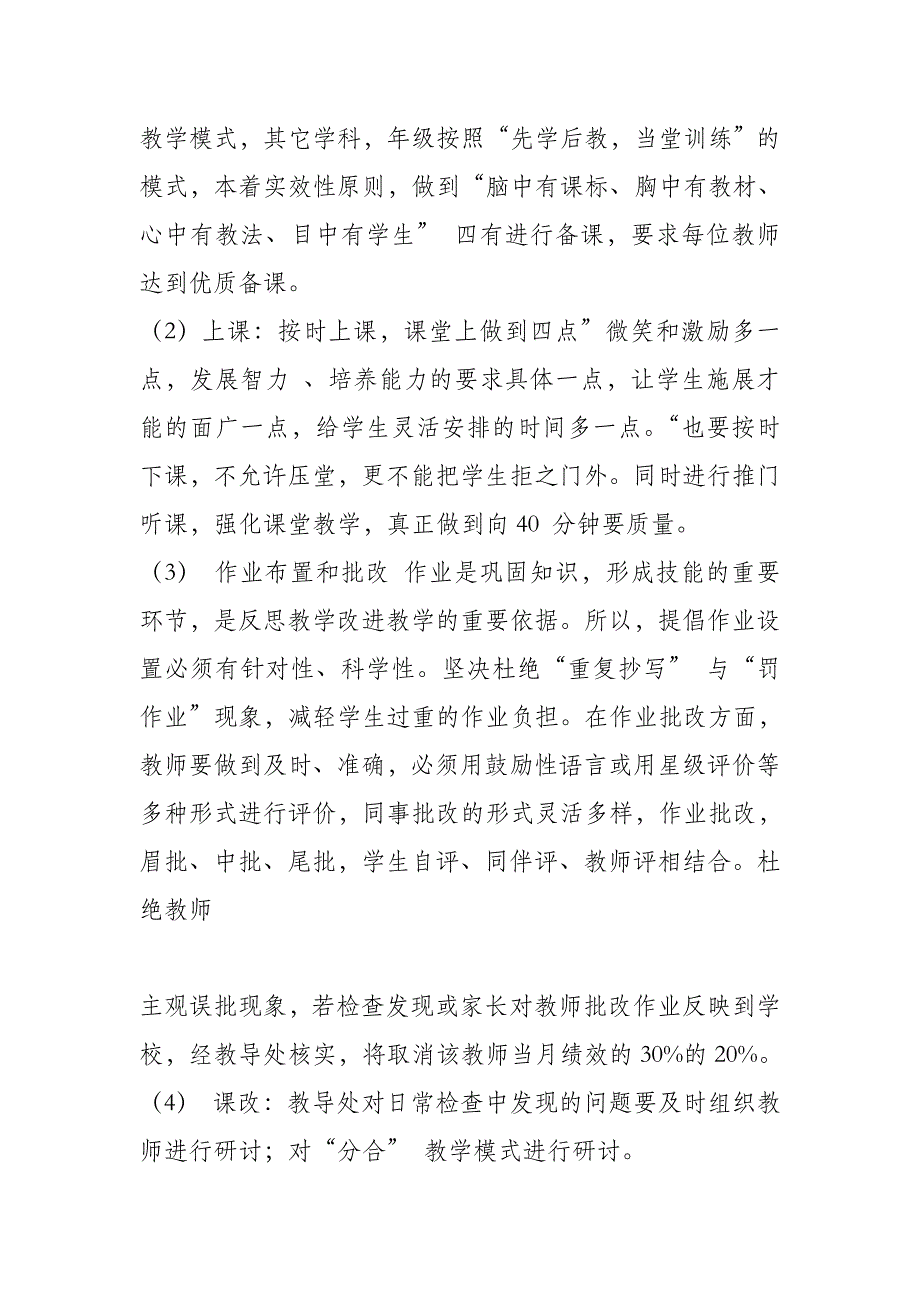 教学模式，其它学科，年级按照“先学后教，当堂训练”的
模式，本着实效性原则，做到“脑中有课标、胸中有教材、
心中有教法、目中有学生” 四有进行备课，要求每位教师
达到优质备课。
（2）上课：按时上课，课堂上做到四点”微笑和激励多一
点，发展智力 、培养能力的要求具体一点，让学生施展才
能的面广一点，给学生灵活安排的时间多一点。“也要按时
下课，不允许压堂，更不能把学生拒之门外。同时进行推门
听课，强化课堂教学，真正做到向 40 分钟要质量。
（3） 作业布置和批改 作业是巩固知识，形成技能的重要
环节，是反思教学改进教学的重要依据。所以，提倡作业设
置必须有针对性、科学性。坚决杜绝“重复抄写” 与“罚
作业”现象，减轻学生过重的作业负担。在作业批改方面，
教师要做到及时、准确，必须用鼓励性语言或用星级评价等
多种形式进行评价，同事批改的形式灵活多样，作业批改，
眉批、中批、尾批，学生自评、同伴评、教师评相结合。杜
绝教师
主观误批现象，若检查发现或家长对教师批改作业反映到学
校，经教导处核实，将取消该教师当月绩效的 30%的 20%。
（4） 课改：教导处对日常检查中发现的问题要及时组织教
师进行研讨；对“分合” 教学模式进行研讨。